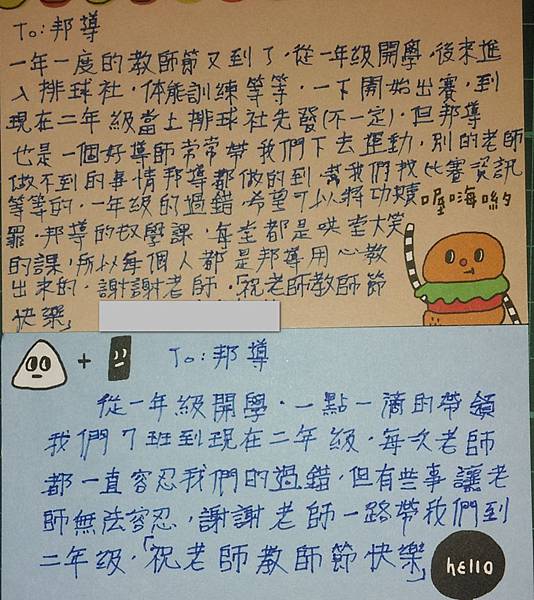 To:邦導
一年一度的教師節又到了,從一年級開學,後來進
入排球社,体能訓練等等,一下開始出賽,到
現在二年級當上排球社先發(不一定),但邦導
也是一個好導師常常帶我們下去運動,別的老師
做不到的事情邦導都做的到,幫我們找比賽資訊
等等的,一年級的過錯,希望可以將功贖
罪,邦導的教學課,每堂都是哄堂大笑
的課,所以每個人都是邦導用心教
出來的,謝謝老師,祝老師教師節
快樂」
喔嗨喲
+ To:邦導
從一年級開學,一點一滴的帶領
我們7班到現在二年級,每次老師
都一直容忍我們的過錯,但有些事讓老
師無法容忍,謝謝老師一路帶我們到
二年級,「祝老師教師節快樂」
hello